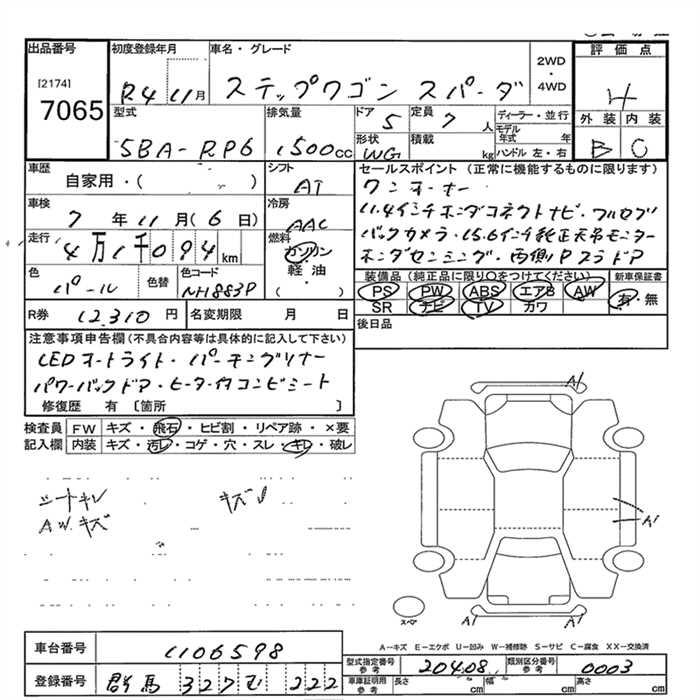 出品番号 初度登録年月 車名・グレード 2WD・4WD 評価点
[2174] 7065 R4 11月 ステップワゴン スパーダ 4
型式 排気量 ドア 5 定員 7人 ディーラー・並行 外装 内装
5BA-RP6 1500cc 形状 WG 積載 kg モデル年式 年 ハンドル 左・右 B C
車歴 自家用・( ) シフト AT セールスポイント (正常に機能するものに限ります)
ワンオーナー
車検 7年11月(6日) 冷房 AAC 11.4インチホンダコネクトナビ・フルセグ
走行 4万1千094km 燃料 ガソリン・軽油 ( ) バックカメラ・15.6インチ純正天吊モニター
ホンダセンシング・両側Pスラドア
色 パール 色替 色コード NH883P 装備品 (純正品に限り○をつけてください) 新車保証書
PS PW ABS エアB AW 有・無
R券 12,310円 名変期限 月 日 SR ナビ TV カワ
後日品
注意事項申告欄 (不具合内容等は具体的に記入して下さい)
LEDオートライト・パーキングソナー
パワーバックドア・ヒーター付コンビシート
修復歴 有 [箇所 ]
検査員 FW キズ・飛石・ヒビ割・リペア跡・×要
記入欄 内装 キズ・汚レ・コゲ・穴・スレ・キレ・破レ
シートキレ キズ
A.W.キズ
A1
A1
A1 A1
スペア
A-キズ E-エクボ U-凹み W-補修跡 S-サビ C-腐食 XX-交換済
車台番号 1106598
型式指定番号 参考 20408 類別区分番号 参考 0003
登録番号 群馬 327 む 222
車庫証明用 参考 長さ cm 幅 cm 高さ cm